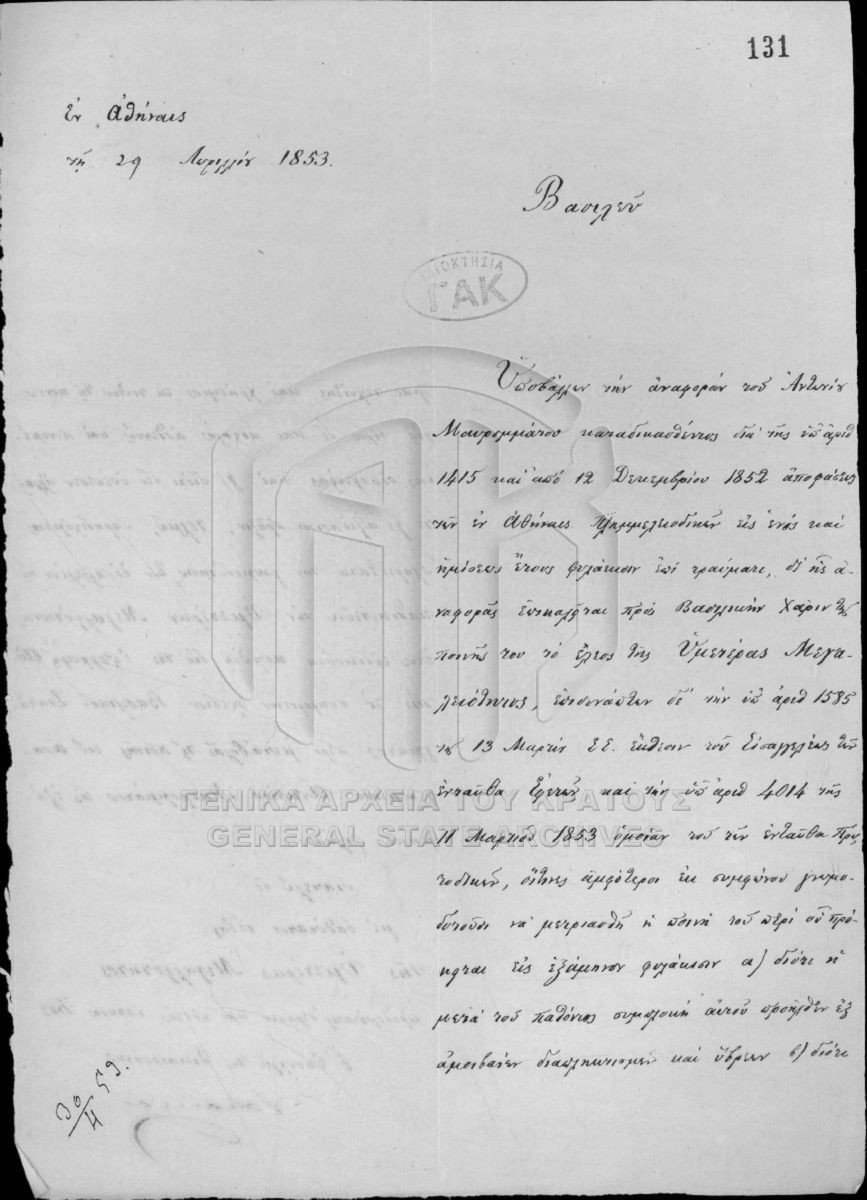 131
Ἐν Ἀθήναις
τῇ 29 Ἀπριλλίου 1853.
Βασιλεῦ
ΙΔΙΟΚΤΗΣΙΑ
ΓΑΚ
Ὑποβάλλων τὴν ἀναφορὰν τοῦ Ἀντωνίου
Μαυρομμάτου καταδικασθέντος διὰ τῆς ὑπ' ἀριθ
1415 καὶ ἀπὸ 12 Δεκεμβρίου 1852 ἀποφάσεως
τῶν ἐν Ἀθήναις Πλημμελειοδικῶν εἰς ἑνὸς καὶ
ἡμίσεως ἔτους φυλάκισιν ἐπὶ τραύματι, δι' ἧς ἀ-
ναφορᾶς ἐπικαλεῖται πρὸς Βασιλικὴν Χάριν τῆς
ποινῆς του τὸ ἔλεος τῆς Ὑμετέρας Μεγα-
λειότητος, ἐπισυνάπτων δὲ τὴν ὑπ' ἀριθ 1585
τῆς 13 Μαρτίου ἔ.ἔ. ἔκθεσιν τοῦ Εἰσαγγελέως τῶν
ἐνταῦθα Ἐφετῶν καὶ τὴν ὑπ' ἀριθ 4014 τῆς
11 Μαρτίου 1853 ὁμοίαν τοῦ τῶν ἐνταῦθα Πρω-
τοδικῶν, οἵτινες ἀμφότεροι ἐκ συμφώνου γνωμο-
δοτοῦσι νὰ μετριασθῇ ἡ ποινὴ τοῦ περὶ οὗ πρό-
κειται εἰς ἑξάμηνον φυλάκισιν α) διότι ἡ
μετὰ τοῦ παθόντος συμπλοκὴ αὐτοῦ προῆλθεν ἐξ
ἀμοιβαίων διαπληκτισμῶν καὶ ὕβρεων β) διότι
30/4 53.
ΓΕΝΙΚΑ ΑΡΧΕΙΑ ΤΟΥ ΚΡΑΤΟΥΣ
GENERAL STATE ARCHIVES